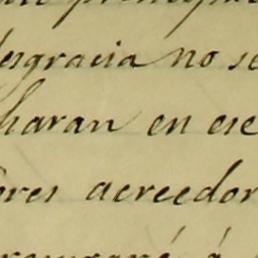 desgracia no se
haran en ese
ores acreedor
á